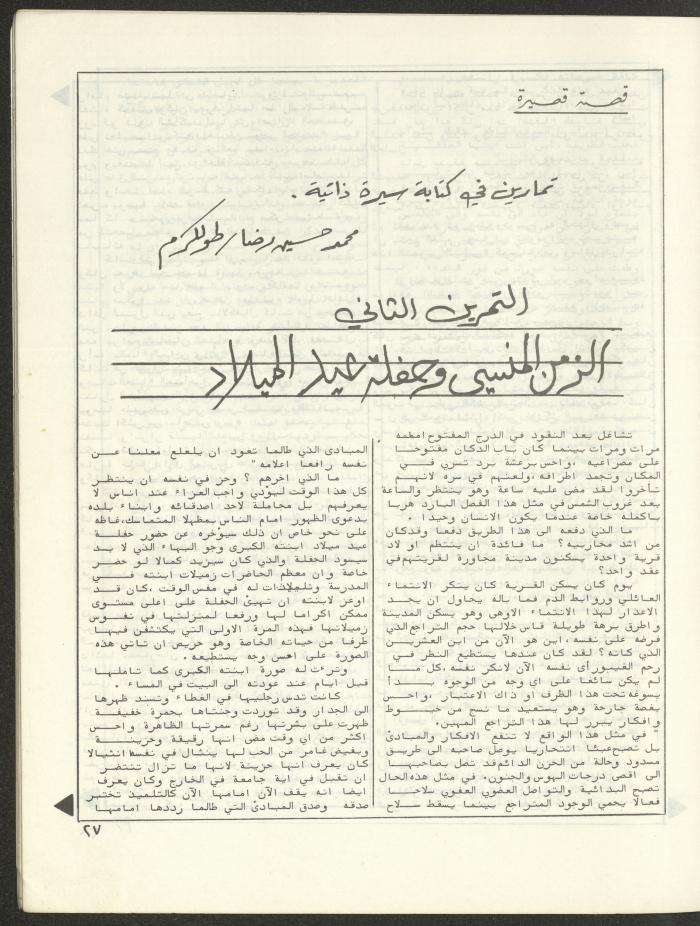 قصة قصيرة
تمارين في كتابة سيرة ذاتية .
محمد حسين رضا / طولكرم
التمرين الثاني
الزمن المنسي وحفلة عيد الميلاد
تشاغل بعد النقود في الدرج المفتوح امامه
مرات ومرات بينما كان باب الدكان مفتوحا
على مصراعيه ، واحس برعشة برد تسري في
المكان وتجمد اطرافه ، ولعنهم في سره لانهم
تأخروا لقد مضى عليه ساعة وهو ينتظر والساعة
بعد غروب الشمس في مثل هذا الفصل البارد هربا
باكمله خاصة عندما يكون الانسان وحيدا .
ما الذي دفعه الى هذا الطريق دفعا وقد كان
من اشد محاربيه ؟ ما فائدة ان ينتظم اولاد
قرية واحدة يسكنون مدينة مجاورة لقريتهم في
عقد واحد؟
يوم كان يسكن القرية كان ينكر الانتماء
العائلي وروابط الدم فما باله يحاول ان يجد
الاعذار لهذا الانتماء الاوهى وهو يسكن المدينة
واطرق برهة طويلة قاس خلالها حجم التراجع الذي
فرضه على نفسه ، اين هو الآن من ابن العشرين
الذي كانه ؟ لقد كان عندها يستطيع النظر في
رحم الغيب ورأى نفسه الآن لانكر نفسه ، كل ما
لم يكن سائغا على اي وجه من الوجوه بدأ
يسوغه تحت هذا الظرف او ذاك الاعتبار ، واحس
بغصة جارحة وهو يستعيد ما نسج من خيوط
وافكار يبرر لها هذا التراجع المهين.
" في مثل هذا الواقع لا تنفع الافكار والمبادئ
بل تصبح عبئا انتحاريا يوصل صاحبه الى طريق
مسدود وحالة من الحزن الدائم قد تصل بصاحبها
الى اقصى درجات الهوس والجنون. في مثل هذه الحال
تصبح البدائية والتواصل العضوي العفوي سلاحا
فعالا يحمي الوجود المتراجع بينما يسقط سلاح
المبادئ الذي طالما تعود ان يلعلع معلنا عن
نفسه رافعا اعلامه "
ما الذي اخرهم ؟ وحز في نفسه ان ينتظر
كل هذا الوقت ليؤدي واجب العزاء عند اناس لا
يعرفهم بل مجاملة لاحد اصدقائه وابناء بلده
بدعوى الظهور امام الناس بمظهر المتماسك ، غاظه
على نحو خاص ان ذلك سيؤخره عن حضور حفلة
عيد ميلاد ابنته الكبرى وجو البهاء الذي لا بد
سيسود الحفلة والذي كان سيزيد كمالا لو حضر
خاصة وان معظم الحاضرات زميلات ابنته في
المدرسة وتلميذات له في نفس الوقت ، كان قد
اوعز لابنته ان تهيئ الحفلة على اعلى مستوى
ممكن اكراما لها ورفعا لمنزلتها في نفوس
زميلاتها فهذه المرة الاولى التي يكتشفن فيها
طرفا من حياته الخاصة وهو حريص ان تاتي هذه
الصورة على احسن وجه يستطيعه .
وتراءت له صورة ابنته الكبرى كما تاملها
قبل ايام عند عودته الى البيت في المساء .
كانت تدس رجليها في الغطاء وتسند ظهرها
الى الجدار وقد توردت وجنتاها بحمرة خفيفة
ظهرت على بشرتها رغم سمرتها الظاهرة واحس
اكثر من اي وقت مضى انها رقيقة وحزينة
وبفيض غامر من الحب لها ينثال في نفسه انثيالا
كان يعرف انها حزينة لانها ما تزال تنتظر
ان تقبل في اية جامعة في الخارج وكان يعرف
ايضا انه يقف الآن امامها الآن كالتلميذ تختبر
صدقه وصدق المبادئ التي طالما رددها امامها
٢٧